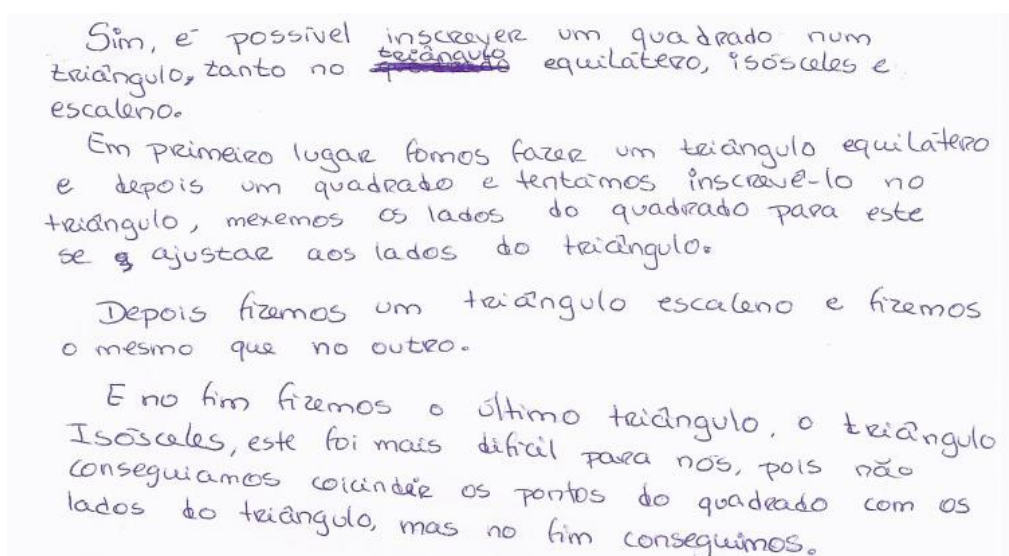 Sim, é possível inscrever um quadrado num
triângulo, tanto no triângulo equilátero, isósceles e
escaleno.
Em primeiro lugar fomos fazer um triângulo equilátero
e depois um quadrado e tentámos inscrevê-lo no
triângulo, mexemos os lados do quadrado para este
se ajustar aos lados do triângulo.
Depois fizemos um triângulo escaleno e fizemos
o mesmo que no outro.
E no fim fizemos o último triângulo, o triângulo
Isósceles, este foi mais difícil para nós, pois não
conseguiamos coicindir os pontos do quadrado com os
lados do triângulo, mas no fim conseguimos.